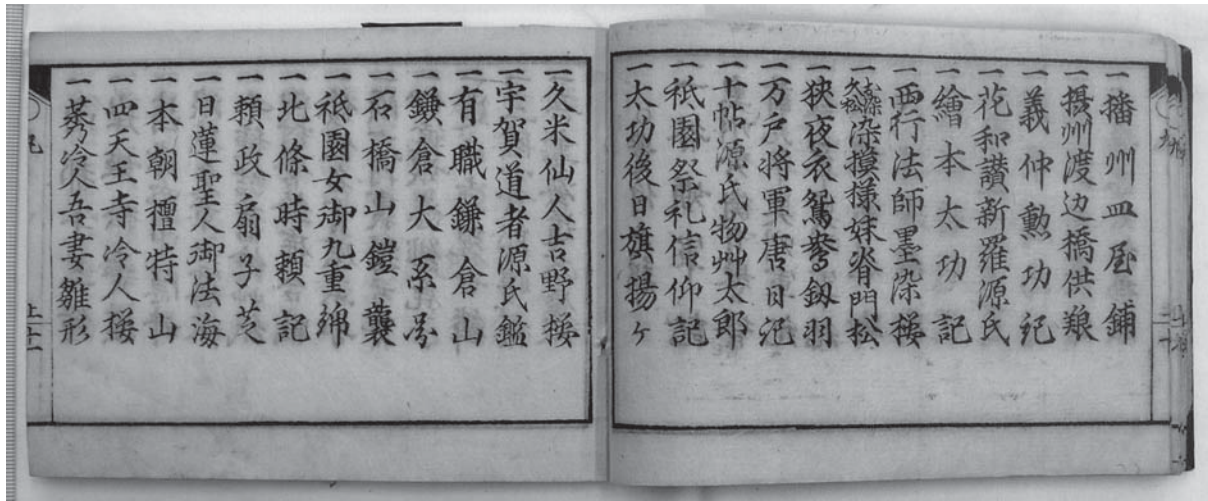 一播州皿屋舗
一摂州渡辺橋供養
一義仲勲功記
一花和讃新羅源氏
一繪本太功記
一西行法師墨染桜
一お染久松染模様妹脊門松
一狭夜衣鴛鴦剣羽
一万戸将軍唐日記
一十帖源氏物艸太郎
一祇園祭礼信仰記
一太功後日旗揚ケ
一久米仙人吉野桜
一宇賀道者源氏鑑
一有職鎌倉山
一鎌倉大系圖
一石橋山鎧襲
一祇園女御九重錦
一北條時頼記
一頼政扇子芝
一日蓮聖人御法海
一本朝檀特山
一四天王寺冷人桜
一莠冷人吾妻雛形